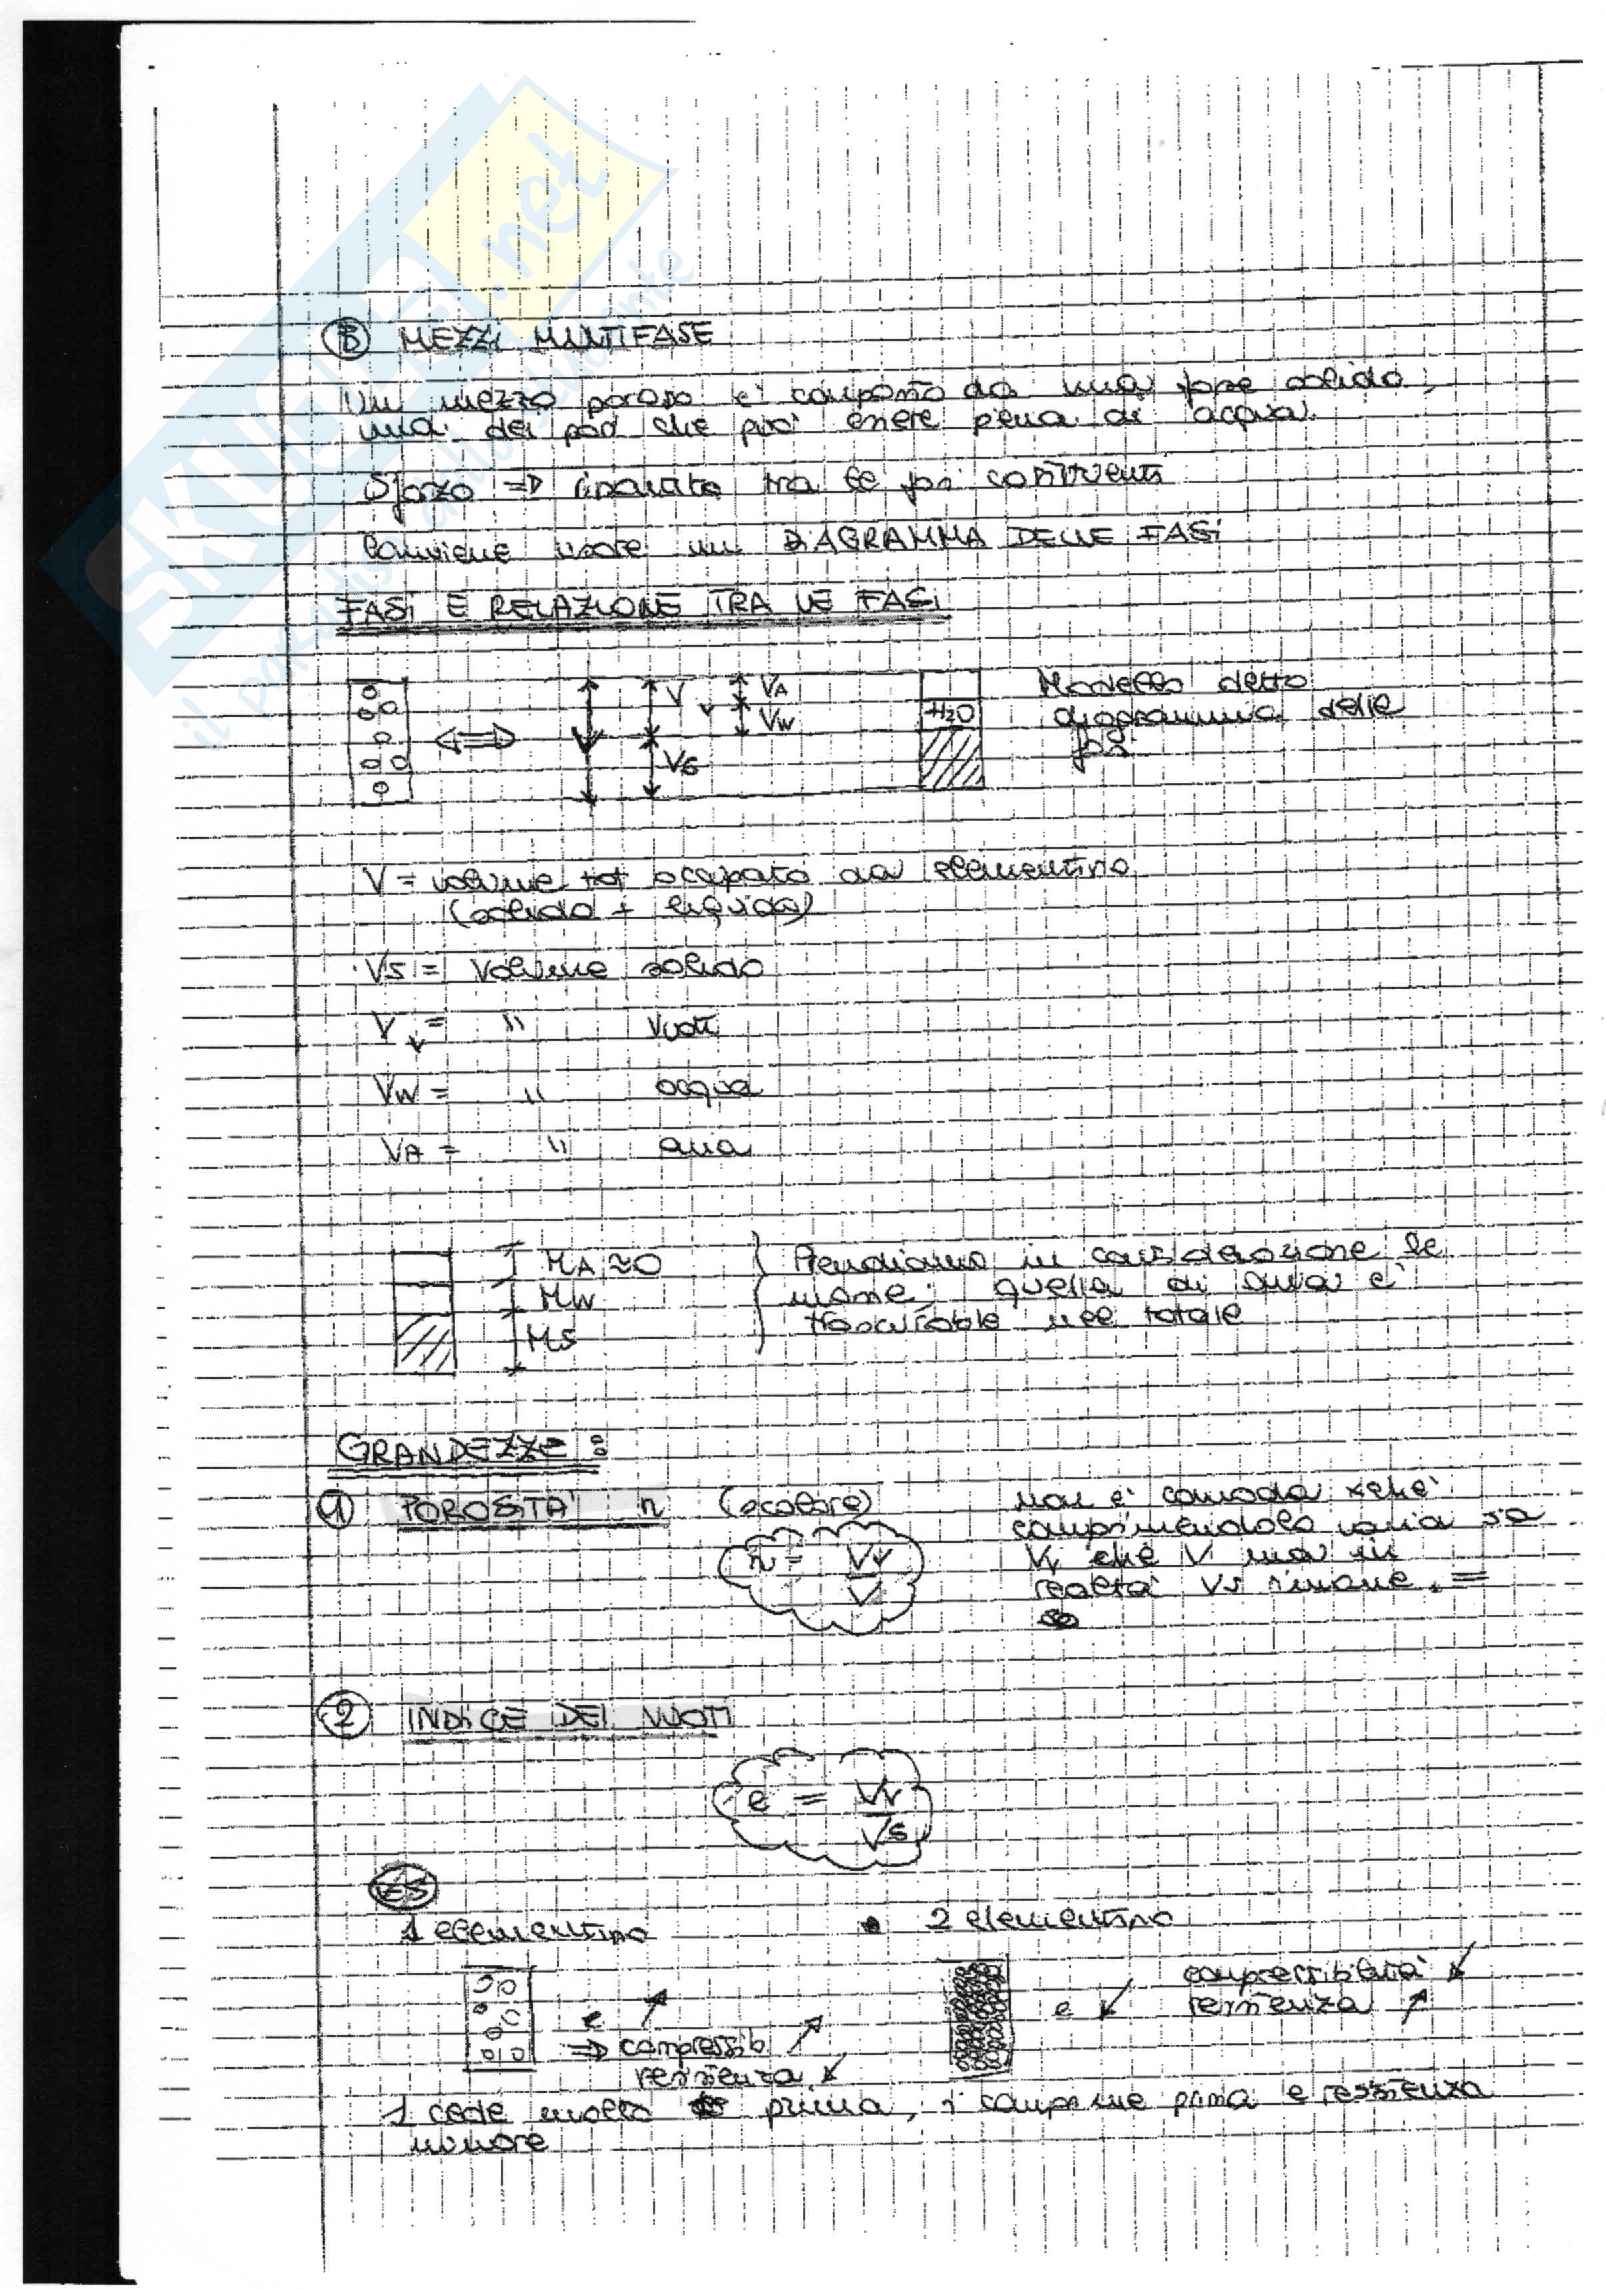 SKUOLA.net
il paradiso dello studente
B MEZZI MULTIFASE
Un mezzo poroso e' composto da una fase solida,
ma dei pori che può essere piena di acqua.
Sforzo => ripartito tra le fasi costituenti
Conviene usare un DIAGRAMMA DELLE FASI
FASI E RELAZIONE TRA LE FASI
V Vv VA
VW
VS
H2O
Modello detto
diagramma delle
fasi
V = volume tot occupato da elementino
(solido + liquido)
VS = Volume solido
Vv = " vuoti
VW = " acqua
VA = " aria
MA ≈ 0
MW
MS
Prendiamo in considerazione le
masse; quella di aria e'
trascurabile nel totale
GRANDEZZE:
1 POROSITA' n (scalare)
n = Vv/V
Non e' comoda xchè
comprimendolo varia sia
Vv che V ma in
realtà Vs rimane =
2 INDICE DEI VUOTI
e = Vv/Vs
ES
1 elementino
2 elementino
e ↗
=> compressib ↗
resistenza ↙
e ↙
compressibilità ↙
resistenza ↗
1 cede molto prima, si comprime prima e resistenza
minore